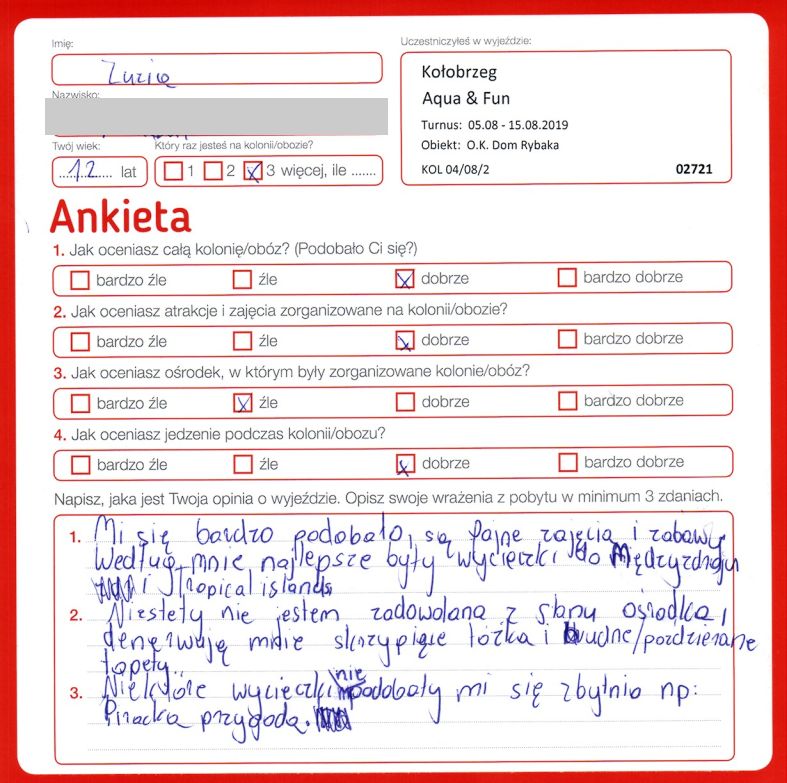 Imię:
Zuzia
Nazwisko:
Twój wiek:
12 lat
Który raz jesteś na kolonii/obozie?
1 2 3 więcej, ile .......
Uczestniczyłeś w wyjeździe:
Kołobrzeg
Aqua & Fun
Turnus: 05.08 - 15.08.2019
Obiekt: O.K. Dom Rybaka
KOL 04/08/2 02721
Ankieta
1. Jak oceniasz całą kolonię/obóz? (Podobało Ci się?)
bardzo źle źle dobrze bardzo dobrze
2. Jak oceniasz atrakcje i zajęcia zorganizowane na kolonii/obozie?
bardzo źle źle dobrze bardzo dobrze
3. Jak oceniasz ośrodek, w którym były zorganizowane kolonie/obóz?
bardzo źle źle dobrze bardzo dobrze
4. Jak oceniasz jedzenie podczas kolonii/obozu?
bardzo źle źle dobrze bardzo dobrze
Napisz, jaka jest Twoja opinia o wyjeździe. Opisz swoje wrażenia z pobytu w minimum 3 zdaniach.
1. Mi się bardzo podobało, są fajne zajęcia i zabawy.
Według mnie najlepsze były wycieczki do Międzyzdroju
i Tropical islands
2. Niestety nie jestem zadowolana z stanu ośrodka,
denerwują mnie skrzypiące łóżka i brudne/pozdzierane
tapety.
3. Niektóre wycieczki nie podobały mi się zbytnio np:
Piracka przygoda.